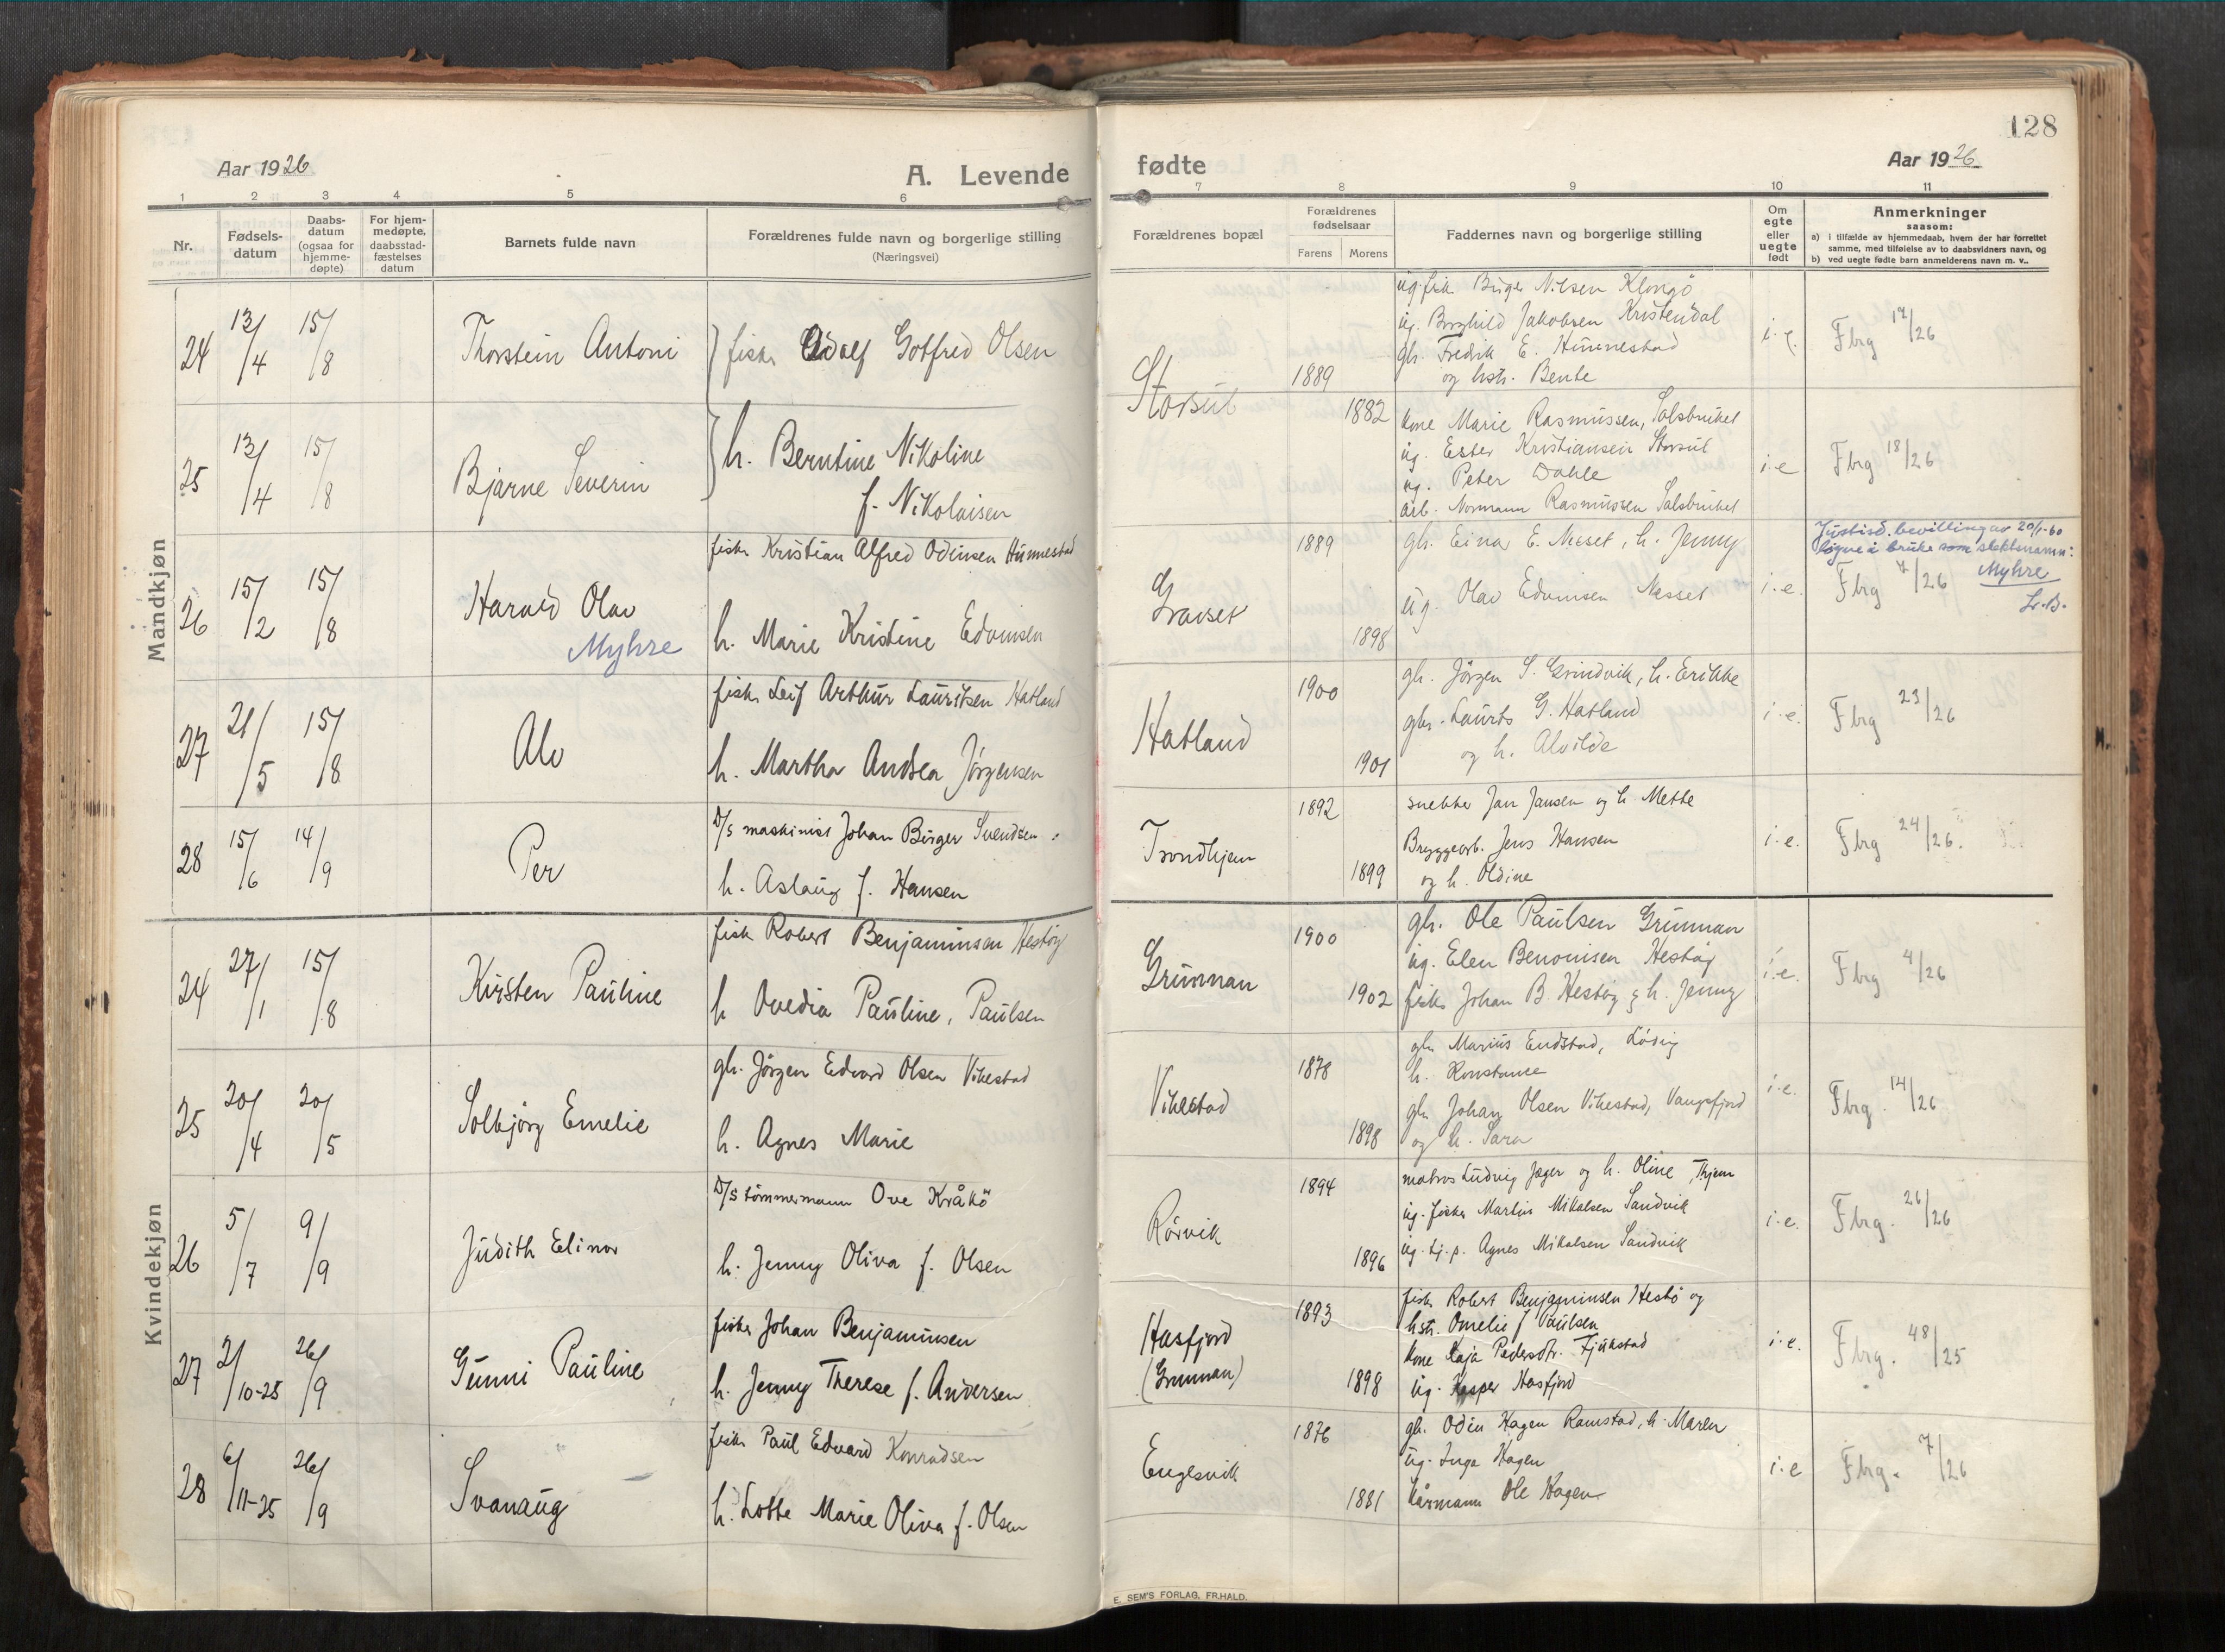 128
Aar 1926
A. Levende
fødte
Aar 1926
1 2 3 4 5 6
7 8 9 10 11
Nr.
Fødsels-
datum
Daabs-
datum
(ogsaa for
hjemme-
døpte)
For hjem-
medøpte,
daabsstad-
fæstelses
datum
Barnets fulde navn
Forældrenes fulde navn og borgerlige stilling
(Næringsvei)
Forældrenes bopæl
Forældrenes
fødselsaar
Farens Morens
Faddernes navn og borgerlige stilling
Om
egte
eller
uegte
født
Anmerkninger
saasom:
a) i tilfælde av hjemmedaab, hvem der har forrettet
samme, med tilføielse av to daabsvidners navn, og
b) ved uegte fødte barn anmelderens navn m. v..
Mandkjøn
24 13/4 15/8 Thorstein Antoni fisker Adolf Gotfred Olsen
Storsul 1889
ug. fisk Birger Nilsen Klongö
ug. Borghild Jakobsen Kristendal
gbr. Fredrik E. Hunnestad
og hstr. Bente
i. e. Fbrg 17/26
25 13/4 15/8 Bjarne Severin h. Berntine Nikoline
f. Nikolaisen
1882
kone Marie Rasmussen, Salsbruket
ug. Ester Kristiansen Storsul
ug. Peter Dahle
arb. Normann Rasmussen Salsbruket
i. e Fbrg 18/26
26 15/2 15/8 Harald Olav
Myhre
fisker Kristian Alfred Odinsen Hunnestad
h. Marie Kristine Edvinsen
Gravset 1889
1898
gbr. Einar E. Næset, h. Jenny
ug. Olav Edvinsen Næsset
i. e. Fbrg 7/26
Justisd. bevilling av 20/1-60
å bruke som slektsnamn:
Myhre
27 21/5 15/8 Alv
fisker Leif Arthur Lauritsen Hatland
h. Martha Andrea Jörgensen
Hatland 1900
1901
gbr. Jörgen S. Grindvik, h. Erikke
gbr. Laurits G. Hatland
og h. Alvilde
i. e. Fbrg 23/26
28 15/6 14/9 Per
D/S maskinist Johan Birger Svendsen
h. Aslaug f. Hansen
Trondhjem 1892
1899
snekker Jan Jansen og h. Mette
Bryggearb. Jens Hansen
og h. Oldine
i. e. Fbrg 24/26.
Kvindekjøn
24 27/1 15/8 Kirsten Pauline
fisk Robert Benjaminsen Hestöy
h Ovedia Pauline, Paulsen
Grunnan 1900
1902
gbr. Ole Paulsen Grunnan
ug. Elen Benonisen Hestöy
fisker Johan B Hestöy & h. Jenny
i. e. Fbrg 4/26
25 20/4 20/5 Solbjörg Emelie
gbr. Jörgen Edvard Olsen Vikestad
h. Agnes Marie
Vikestad 1878
1898
gbr Marius Endstad,
h. Konstance
gbr Johan Olsen Vikestad,
og h. Sara
i. e. Fbrg. 14/26
26 5/7 9/9 Judith Elinor
D/S tömmermann Ove Kråkö
h. Jenny Oliva f. Olsen
Rörvik 1894
1896
matros Ludvig Jæger og h. Oline, Thjem
ug. fisker Martin Mikalsen Sandvik
ug. tj. p. Agnes Mikalsen Sandvik
i. e. Fbrg. 26/26
27 2/10-25 26/9 Gunni Pauline
fisker Johan Benjaminsen
h. Jenny Therese f. Andersen
Hasfjord
(Grunnan)
1893
1898
fisk. Robert Benjaminsen Hestö og
hstr. Omelie f Paulsen
kone Kaja Pedersdtr.
ug. Kasper Hasfjord
i. e. Fbrg. 48/25
28 6/11-25 26/9 Svanaug
fisker Paul Edvard Konradsen
h. Lotte Marie Oliva f. Olsen
Engesvik 1876
1881
gbr. Odin Hagen Ramstad, h. Maren
ug. Inga Hagen
Ole Hagen
i. e Fbrg. 7/26
E. SEM'S FORLAG, FR.HALD.